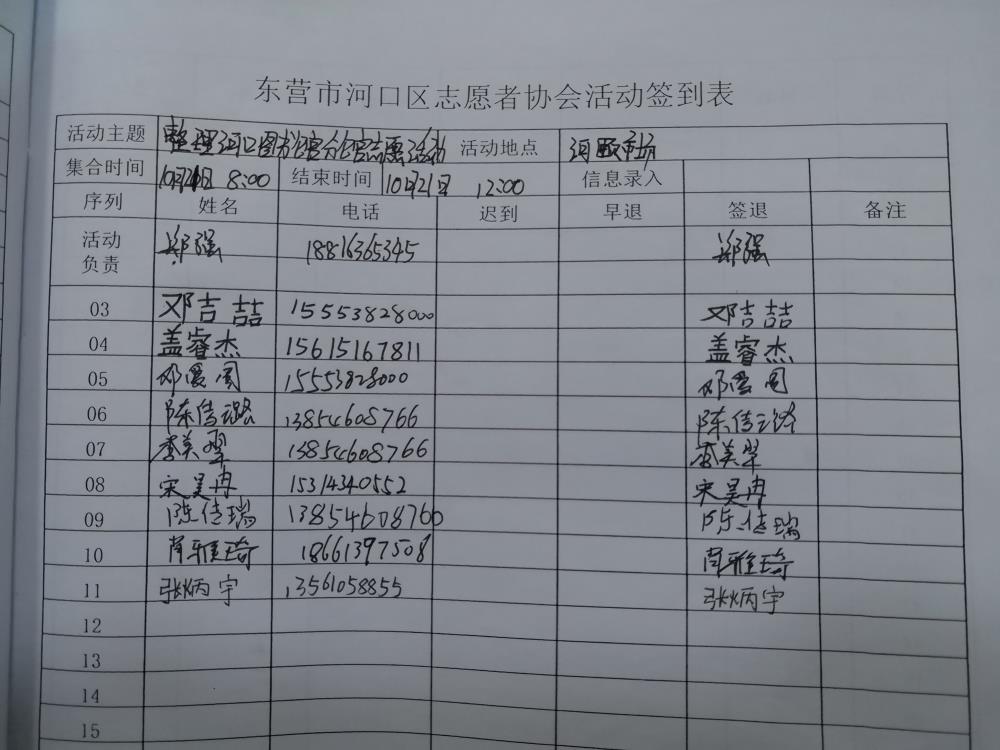 东营市河口区志愿者协会活动签到表
活动主题 整理河口图书馆分馆志愿活动 活动地点
集合时间 10月21日 8:00 结束时间 10月21日 12:00 信息录入
序列 姓名 电话 迟到 早退 签退 备注
活动负责 郑强 18816365345 郑强
03 邓吉喆 15553828000 邓吉喆
04 盖睿杰 15615167811 盖睿杰
05 15553828000
06 陈传璐 13854608766 陈传璐
07 李美翠 13854608766 李美翠
08 宋昊冉 15314340552 宋昊冉
09 陈传瑞 13854608766 陈传瑞
10 肖雅琦 18661397508 肖雅琦
11 张炳宇 13561058855 张炳宇
12
13
14
15